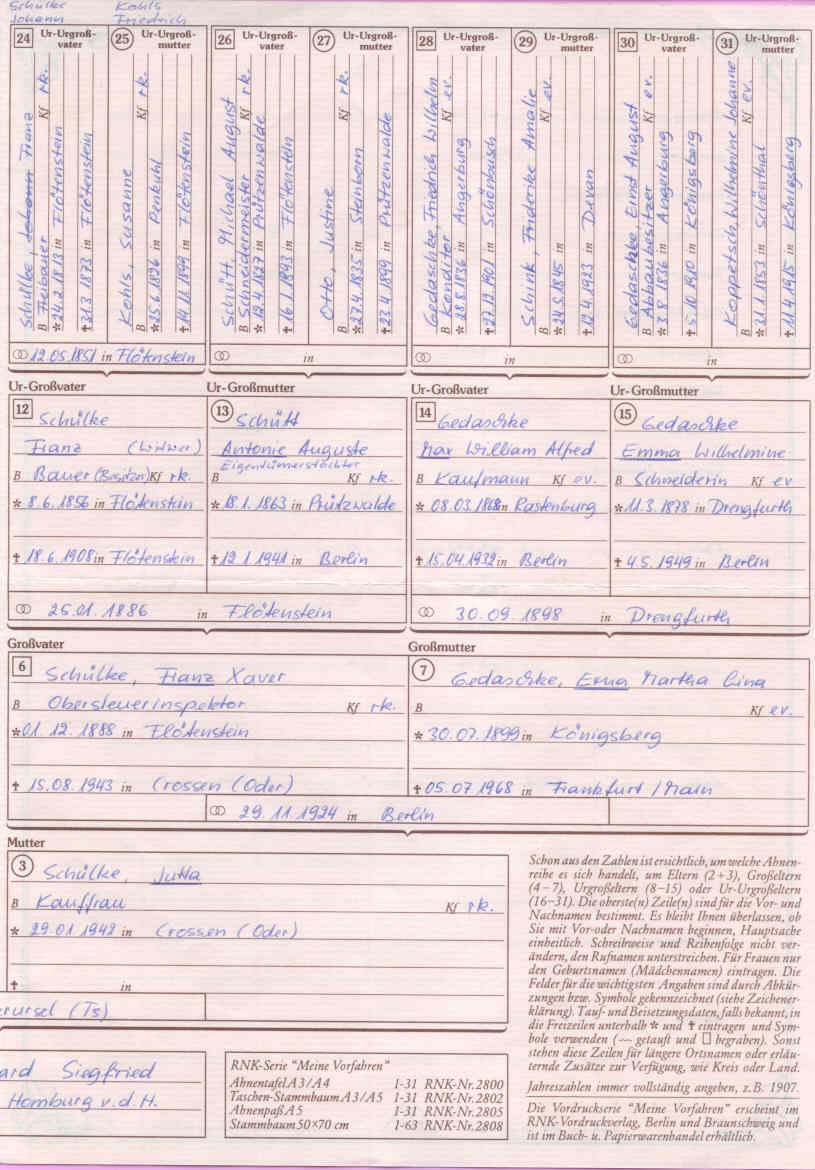 Schülke Kohls
Johann Friedrich
24 Ur-Urgroß-vater
Schülke, Johann Franz
B Freibauer Kf rk.
* 24.2.1813 in Flötenstein
† 3.3.1873 in Flötenstein
25 Ur-Urgroß-mutter
Kohls, Susanne
B Kf rk.
* 25.6.1826 in Penkuhl
† 14.11.1899 in Flötenstein
⚭ 12.05.1851 in Flötenstein
26 Ur-Urgroß-vater
Schütt, Michael August
B Schneidermeister Kf rk.
* 12.4.1827 in Prützenwalde
† 16.1.1893 in Flötenstein
27 Ur-Urgroß-mutter
Otto, Justine
B Kf rk.
* 27.4.1835 in Stenborn
† 23.4.1899 in Prützenwalde
⚭ in
28 Ur-Urgroß-vater
Gedaschke, Friedrich Wilhelm
B Konditor Kf ev.
* 28.8.1836 in Angerburg
† 27.12.1901 in Schönbusch
29 Ur-Urgroß-mutter
Schink, Friderike Amalie
B Kf ev.
* 24.5.1845 in
† 12.4.1923 in
⚭ in
30 Ur-Urgroß-vater
Gedaschke, Ernst August
B Abbaubesitzer Kf ev.
* 3.8.1836 in Angerburg
† 5.10.1910 in Königsberg
31 Ur-Urgroß-mutter
Koppetsch, Wilhelmine Johanne
B Kf ev.
* 21.1.1853 in Schönthal
† 11.4.1915 in Königsberg
⚭ in
Ur-Großvater Ur-Großmutter Ur-Großvater Ur-Großmutter
12 Schülke
Franz (Witwer)
B Bauer (Besitzer) Kf rk.
* 8.6.1856 in Flötenstein
† 18.6.1908 in Flötenstein
13 Schütt
Antonie Auguste
Eigentümerstochter
B Kf rk.
* 18.1.1863 in Prützwalde
† 12.1.1941 in Berlin
⚭ 25.01.1886 in Flötenstein
14 Gedaschke
Max William Alfed
B Kaufmann Kf ev.
* 08.03.1868 in Rastenburg
† 15.04.1932 in Berlin
15 Gedaschke
Emma Wilhelmine
B Schneiderin Kf ev
* 11.3.1878 in Drengfurth
† 4.5.1949 in Berlin
⚭ 30.09.1898 in Drengfurth
Großvater Großmutter
6 Schülke, Franz Xaver
B Obersteuerinspektor Kf rk.
* 01.12.1888 in Flötenstein
† 15.08.1943 in Crossen (Oder)
7 Gedaschke, Erna Martha Lina
B Kf ev.
* 30.07.1899 in Königsberg
† 05.07.1968 in Frankfurt / Main
⚭ 29.11.1924 in Berlin
Mutter
3 Schülke, Jutta
B Kauffrau Kf rk.
* 29.01.1942 in Crossen (Oder)
† in
erursel (Ts)
ard Siegfried
Homburg v.d.H.
RNK-Serie "Meine Vorfahren"
Ahnentafel A3/A4 1-31 RNK-Nr.2800
Taschen-Stammbaum A3/A5 1-31 RNK-Nr.2802
Ahnenpaß A5 1-31 RNK-Nr.2805
Stammbaum 50×70 cm 1-63 RNK-Nr.2808
Schon aus den Zahlen ist ersichtlich, um welche Ahnen-
reihe es sich handelt, um Eltern (2+3), Großeltern
(4–7), Urgroßeltern (8–15) oder Ur-Urgroßeltern
(16–31). Die oberste(n) Zeile(n) sind für die Vor- und
Nachnamen bestimmt. Es bleibt Ihnen überlassen, ob
Sie mit Vor- oder Nachnamen beginnen, Hauptsache
einheitlich. Schreibweise und Reihenfolge nicht ver-
ändern, den Rufnamen unterstreichen. Für Frauen nur
den Geburtsnamen (Mädchennamen) eintragen. Die
Felder für die wichtigsten Angaben sind durch Abkür-
zungen bzw. Symbole gekennzeichnet (siehe Zeichener-
klärung). Tauf- und Beisetzungsdaten, falls bekannt, in
die Freizeilen unterhalb * und † eintragen und Sym-
bole verwenden (— getauft und ▯ begraben). Sonst
stehen diese Zeilen für längere Ortsnamen oder erläu-
ternde Zusätze zur Verfügung, wie Kreis oder Land.
Jahreszahlen immer vollständig angeben, z.B. 1907.
Die Vordruckserie "Meine Vorfahren" erscheint im
RNK-Vordruckverlag, Berlin und Braunschweig und
ist im Buch- u. Papierwarenhandel erhältlich.